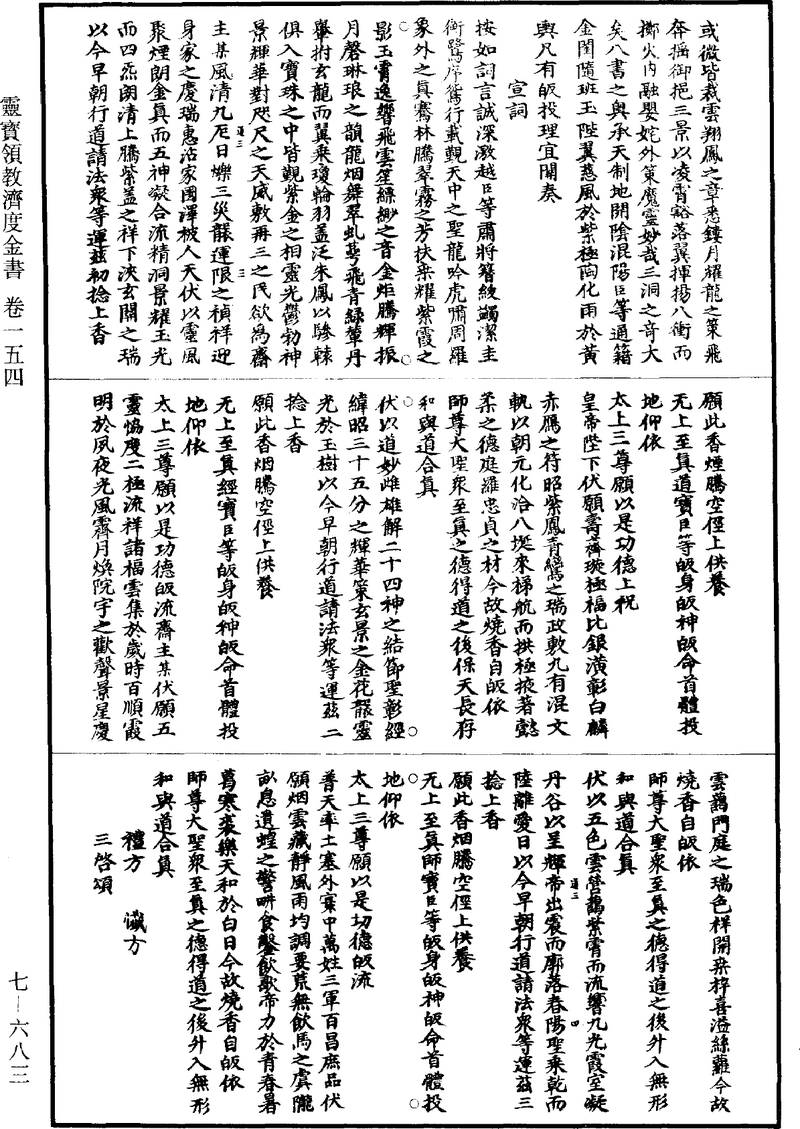 或微皆裁雲翔鳳之章悉鏤月耀龍之策飛
奔搖御挹三景以凌霄豁落翼揮揚八衝而
擲火内融嬰姹外策魔靈妙哉三洞之音大
矣八書之奥承天制地開陰混陽臣等通籍
金闺隨班玉陛翼慈風於紫極陶化雨於黄
輿凡有皈投理宜開奏
宣詞
按如詞言誠深激越臣等肅將簪紱蠲潔圭
衡鷺序鴛行載觀天中之聖龍吟虎嘯周羅
象外之真騫林騰翠霧之芳扶桑耀紫霞之
影玉霄逸響飛雲笙縹緲之音金炬騰輝振
月磬琳琅之韻龍烟舞翠虬蕚飛青綠輦丹
轝拊玄龍而翼乘瓊輪羽蓋泛朱鳳以驂轅
俱入寶珠之中皆觀紫金之相靈光鬱勃神
景輝華對咫尺之天威敷再三之民欲為齋
主某風清九厄日爍三災龍運限之禎祥迎
身家之慶瑞惠沾家國澤被人天伏以靈風
聚煙朗金真而五神凝合流精洞景耀玉光
而四炁朗清上騰紫蓋之祥下浹玄關之瑞
以今早朝行道請法衆等運茲初捻上香
願此香煙騰空徑上供養
无上至真道寶臣等皈身皈神皈命首體投
地仰依
太上三尊願以是功德上祝
皇帝陛下伏願壽齊璇極福比銀潢彰白麟
赤鴈之符昭紫鳳青鸞之瑞政敷九有混文
軌以朝元化洽八埏來梯航而拱極掖著懿
柔之德庭羅忠貞之材今故燒香自皈依
師尊大聖衆至真之德得道之後保天長存
和與道合真
伏以道妙雌雄解二十四神之結節聖彰經
緯昭三十五分之輝華策玄景之金花龍靈
光於玉樹以今早朝行道請法衆等運茲二
捻上香
願此香烟騰空徑上供養
无上至真經寶臣等皈身皈神皈命首體投
地仰依
太上三尊願以是功德皈流齋主某伏願五
靈恊度二極流祥諸福雲集於歲時百順霞
明於夙夜光風霽月煥院宇之歡聲景星慶
雲藹門庭之瑞色祥開桑梓喜溢絲蘿今故
燒香自皈依
師尊大聖衆至真之德得道之後外入無形
和與道合真
伏以五色雲營藹紫霄而流響九光霞室凝
丹谷以呈輝帝出震而廓落春陽聖乘乾而
陸離愛日以今早朝行道請法衆等運茲三
捻上香
願此香烟騰空徑上供養
无上至真師寶臣等皈身皈神皈命首體投
地仰依
太上三尊願以是功德皈流
普天率土塞外寰中萬姓三軍百昌庶品伏
願烟雲藏靜風雨均調要荒無飲馬之虞隴
畝息遺蝗之警畊食鑿飲歌帝力於青春暑
葛寒裘樂天和於白日今故燒香自皈依
師尊大聖衆至真之德得道之後外入無形
和與道合真
禮方　懺方
三啓頌
靈寶領教濟度金書　卷一五四
七—六八三